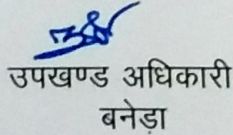 उपखण्ड अधिकारी
बनेडा